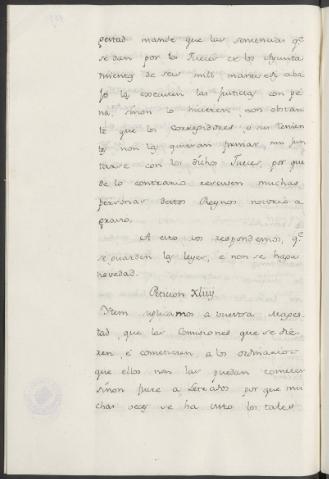 gestad mande que las sentencias q.e
se dan por los Jueces de los Ayunta
mientos de seis mill maravedis aba
jo las executen las Justicias con pe
na, sinon lo hicieren, non obstan
te que los corregidores, o sus tenien
tes non las quieran firmar, nin jun
tarse con los dichos Jueces, por que
de lo contrario resciven muchas
personas destos Reynos notorio a
gravio.
A esto vos respondemos, q.e
se guarden las leyes, e non se haga
novedad.
Peticion XLiiij
Item suplicamos a vuestra Mages
tad, que las Comisiones que se die
ren, é cometieren, a los ordinarios
que ellos non las puedan cometer
sinon fuere a Letrados por que mu
chas veces se ha visto los tales